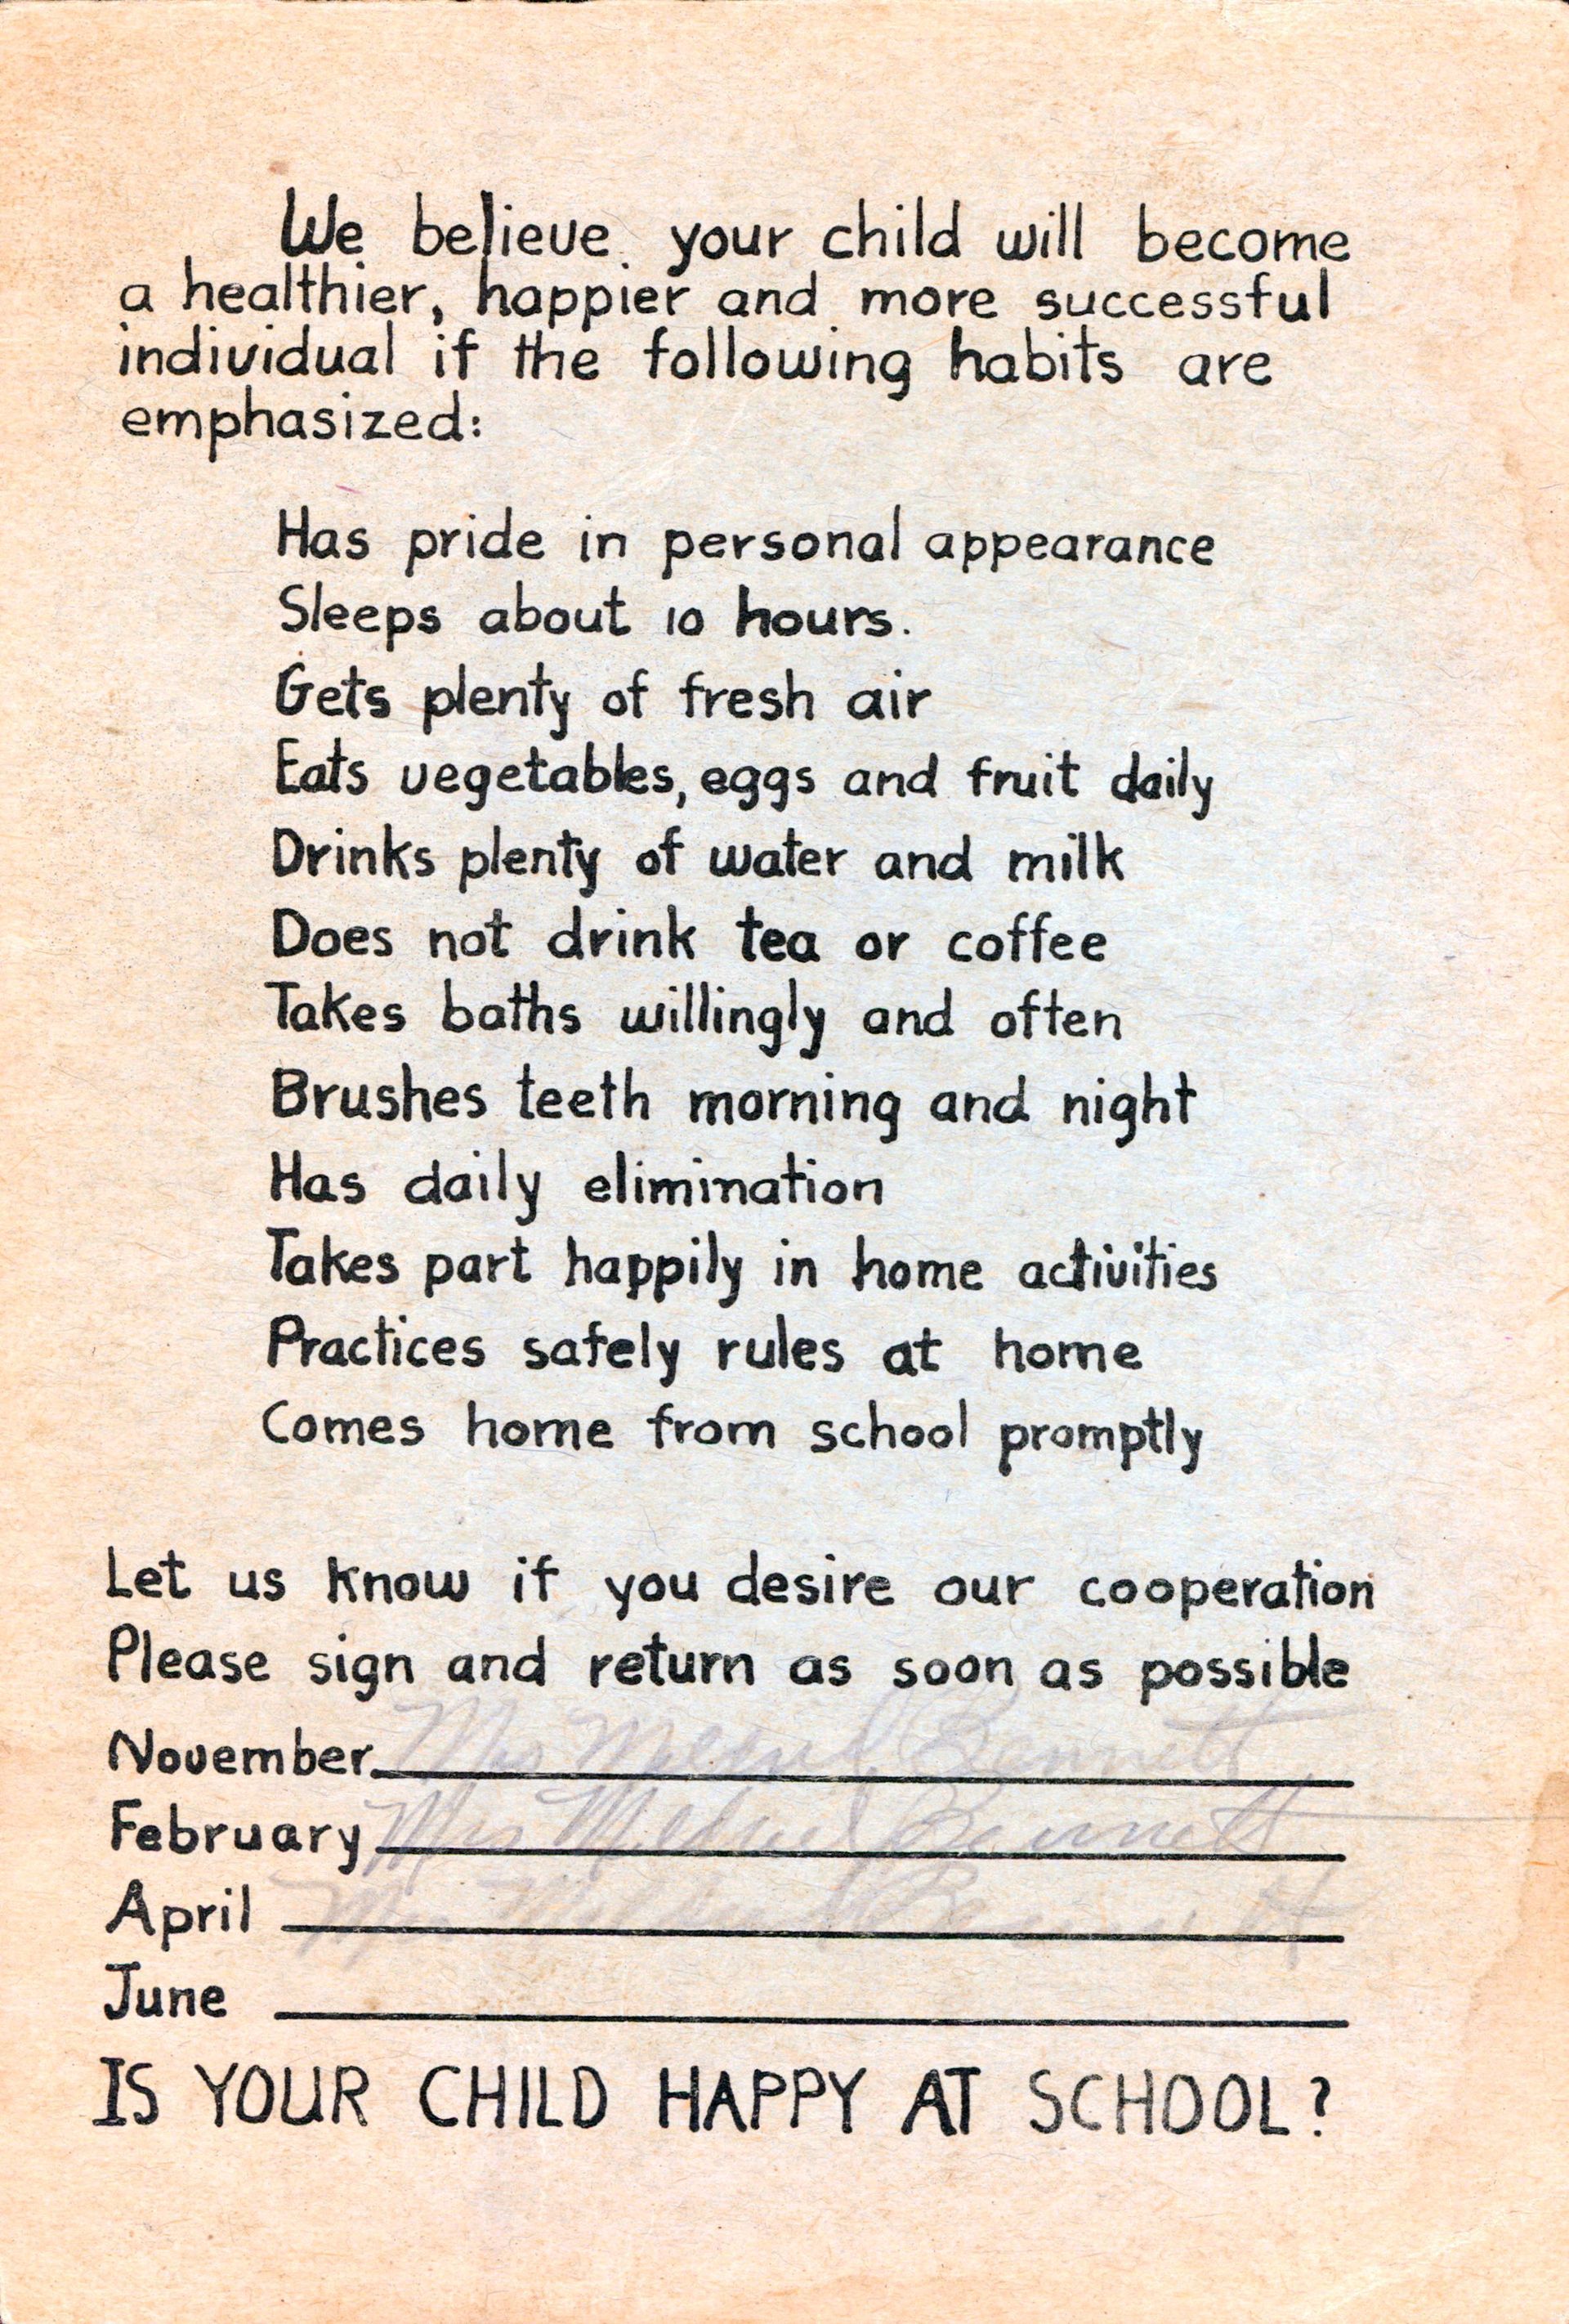 We believe your child will become
a healthier, happier and more successful
individual if the following habits are
emphasized:
Has pride in personal appearance
Sleeps about 10 hours.
Gets plenty of fresh air
Eats vegetables, eggs and fruit daily
Drinks plenty of water and milk
Does not drink tea or coffee
Takes baths willingly and often
Brushes teeth morning and night
Has daily elimination
Takes part happily in home activities
Practices safely rules at home
Comes home from school promptly
Let us know if you desire our cooperation
Please sign and return as soon as possible
November Mrs Bennett
February Mrs Bennett
April Bennett
June
IS YOUR CHILD HAPPY AT SCHOOL?